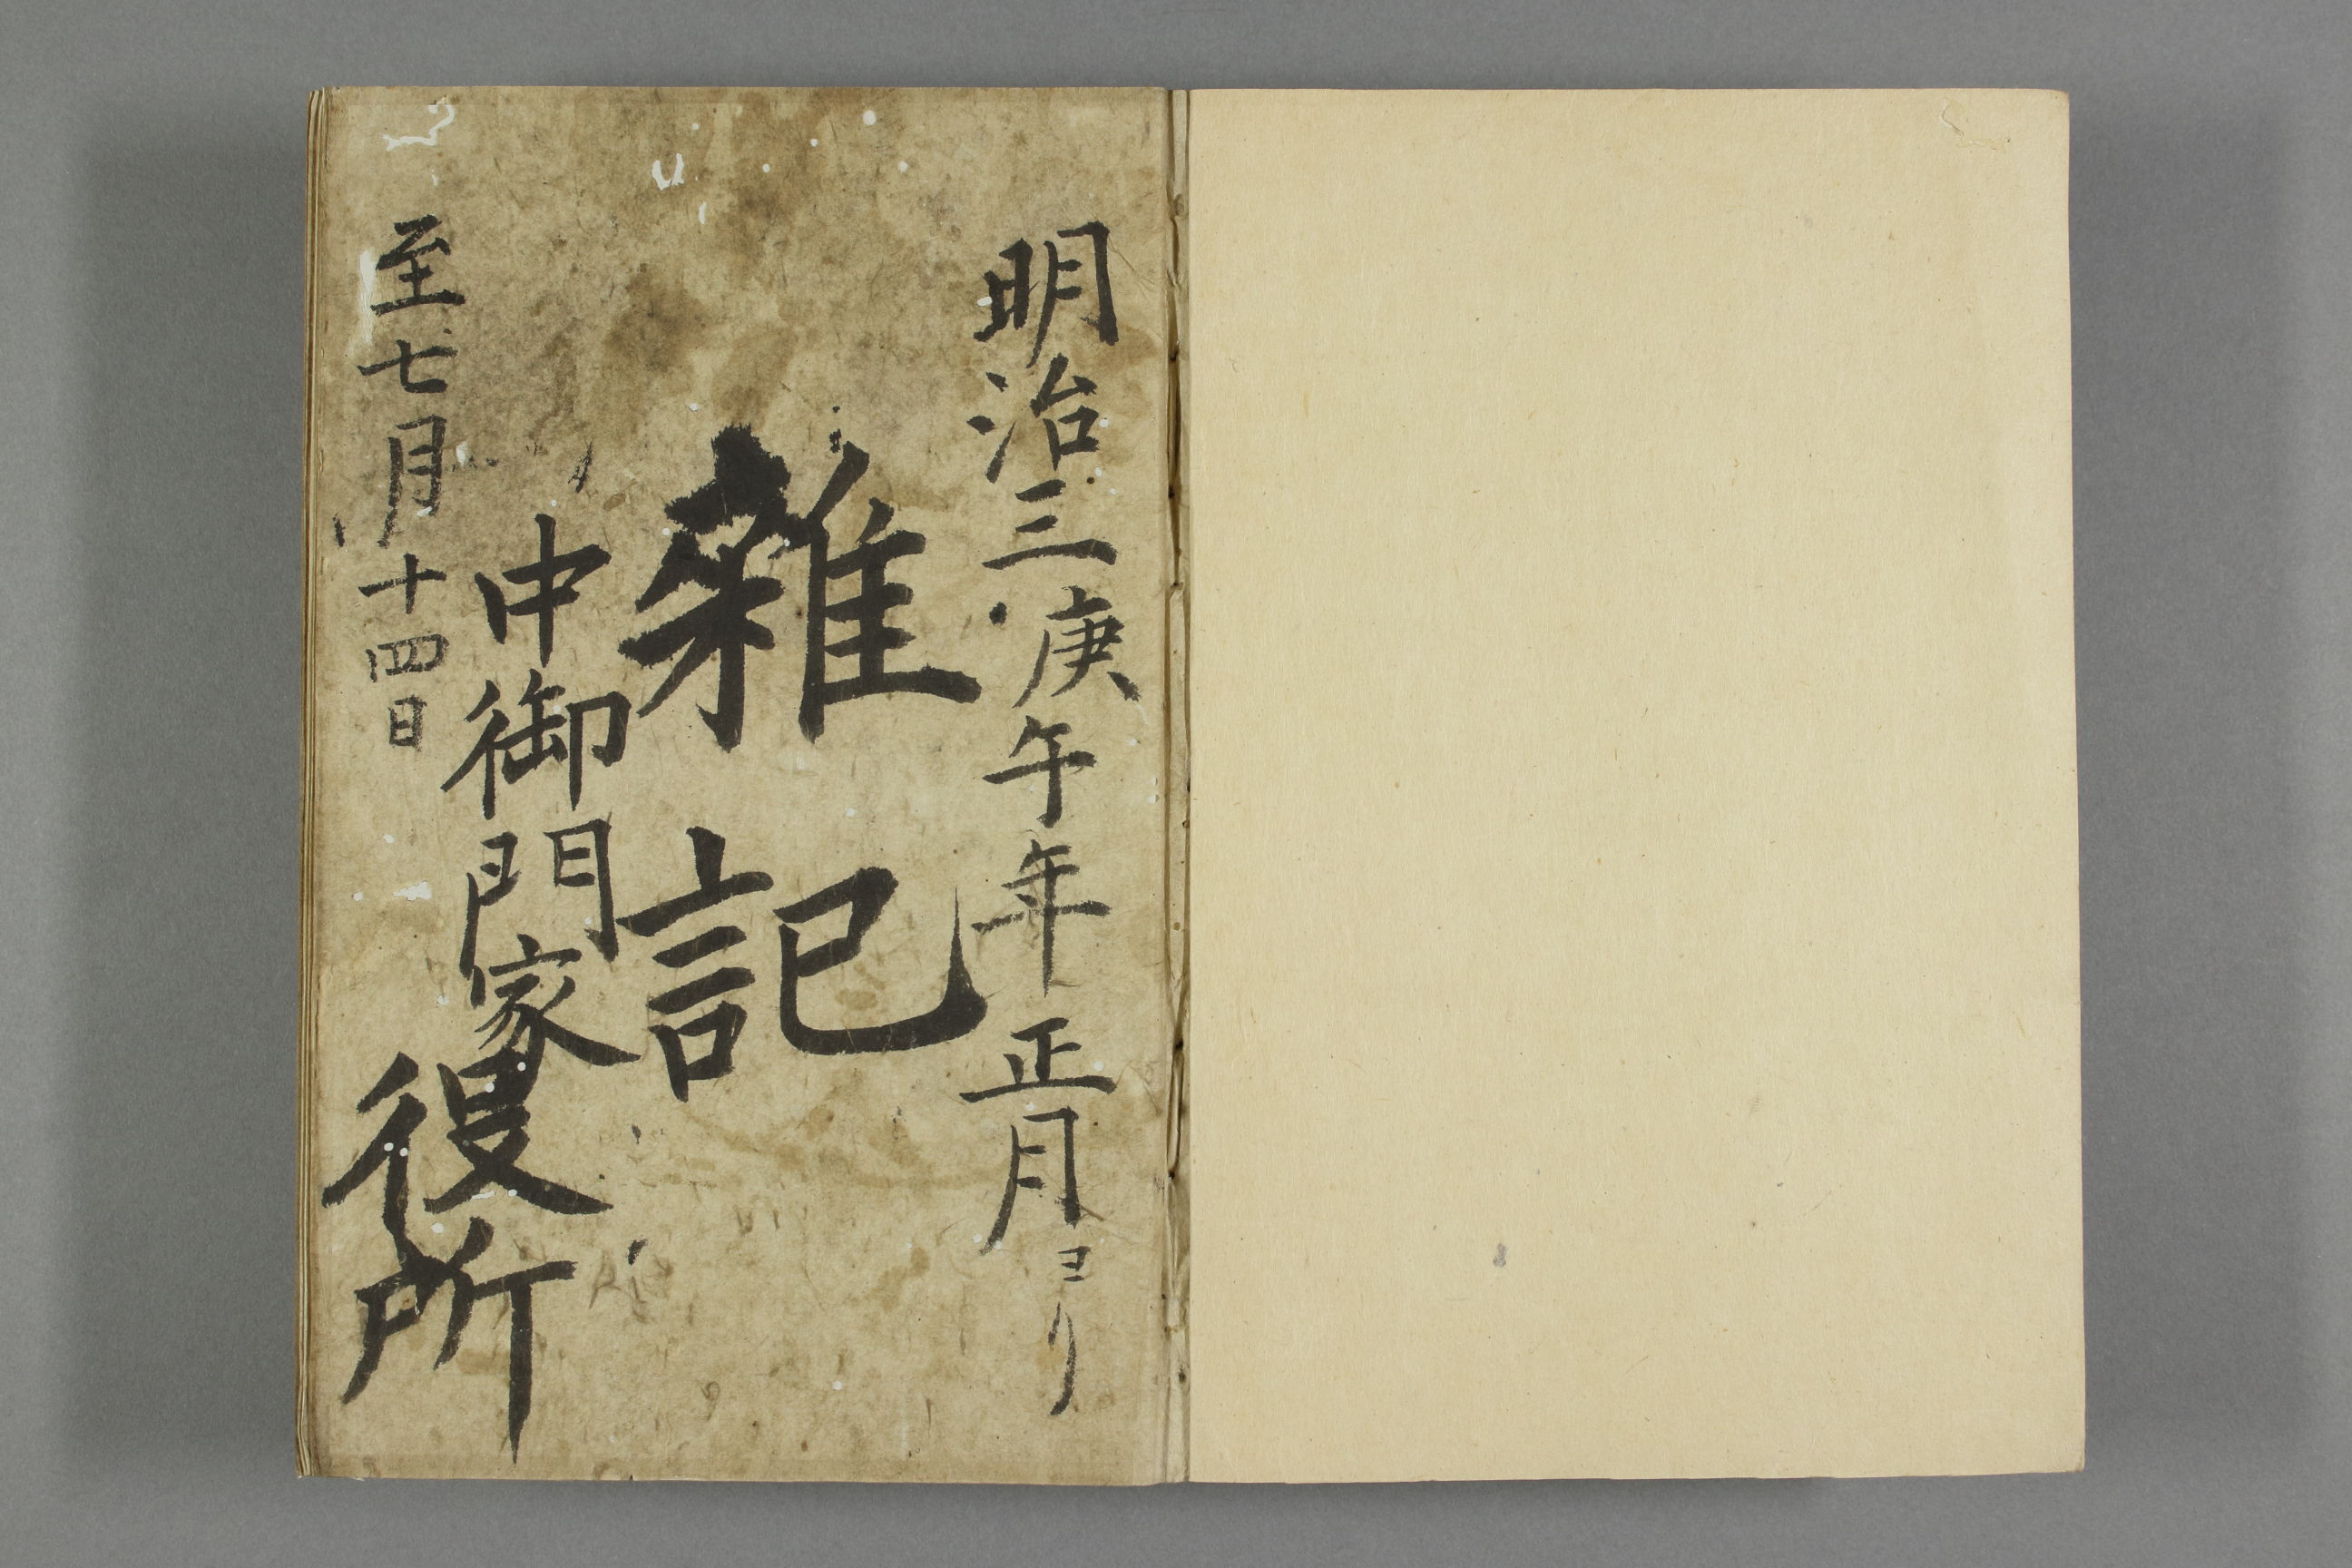 明治三庚午年正月ヨリ
雑記
中御門家
役所
至七月十四日